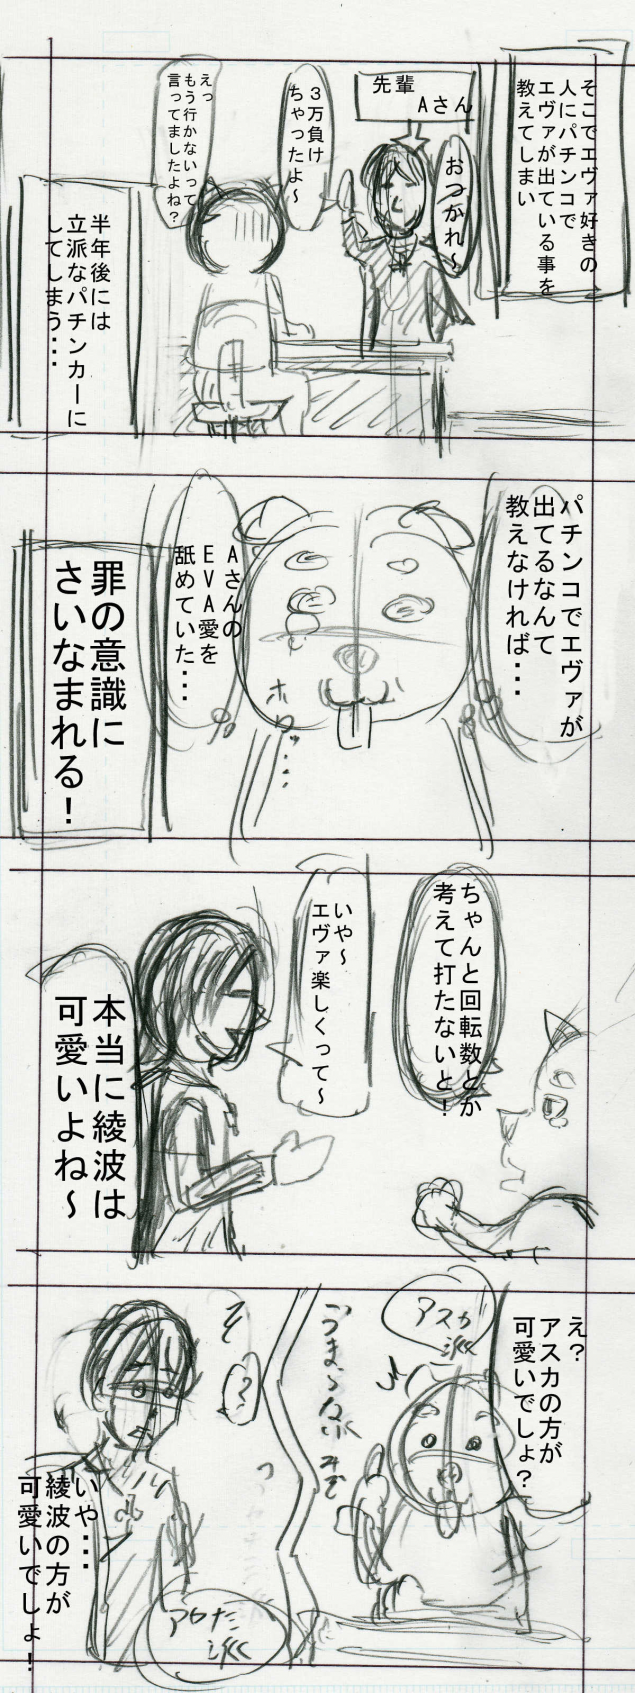 そこでエヴァ好きの
人にパチンコで
エヴァが出ている事を
教えてしまい
先輩
Aさん
おつかれ～
３万負け
ちゃったよ～
えっ
もう行かないって
言ってましたよね？
半年後には
立派なパチンカーに
してしまう・・・
パチンコでエヴァが
出てるなんて
教えなければ・・・
Aさんの
EVA愛を
舐めていた・・・
ホロッ・・・
罪の意識に
さいなまれる！
ちゃんと回転数とか
考えて打たないと！
いや～
エヴァ楽しくって～
本当に綾波は
可愛いよね～
え？
アスカの方が
可愛いでしょ？
アスカ
派
いや・・・
綾波の方が
可愛いでしょ！